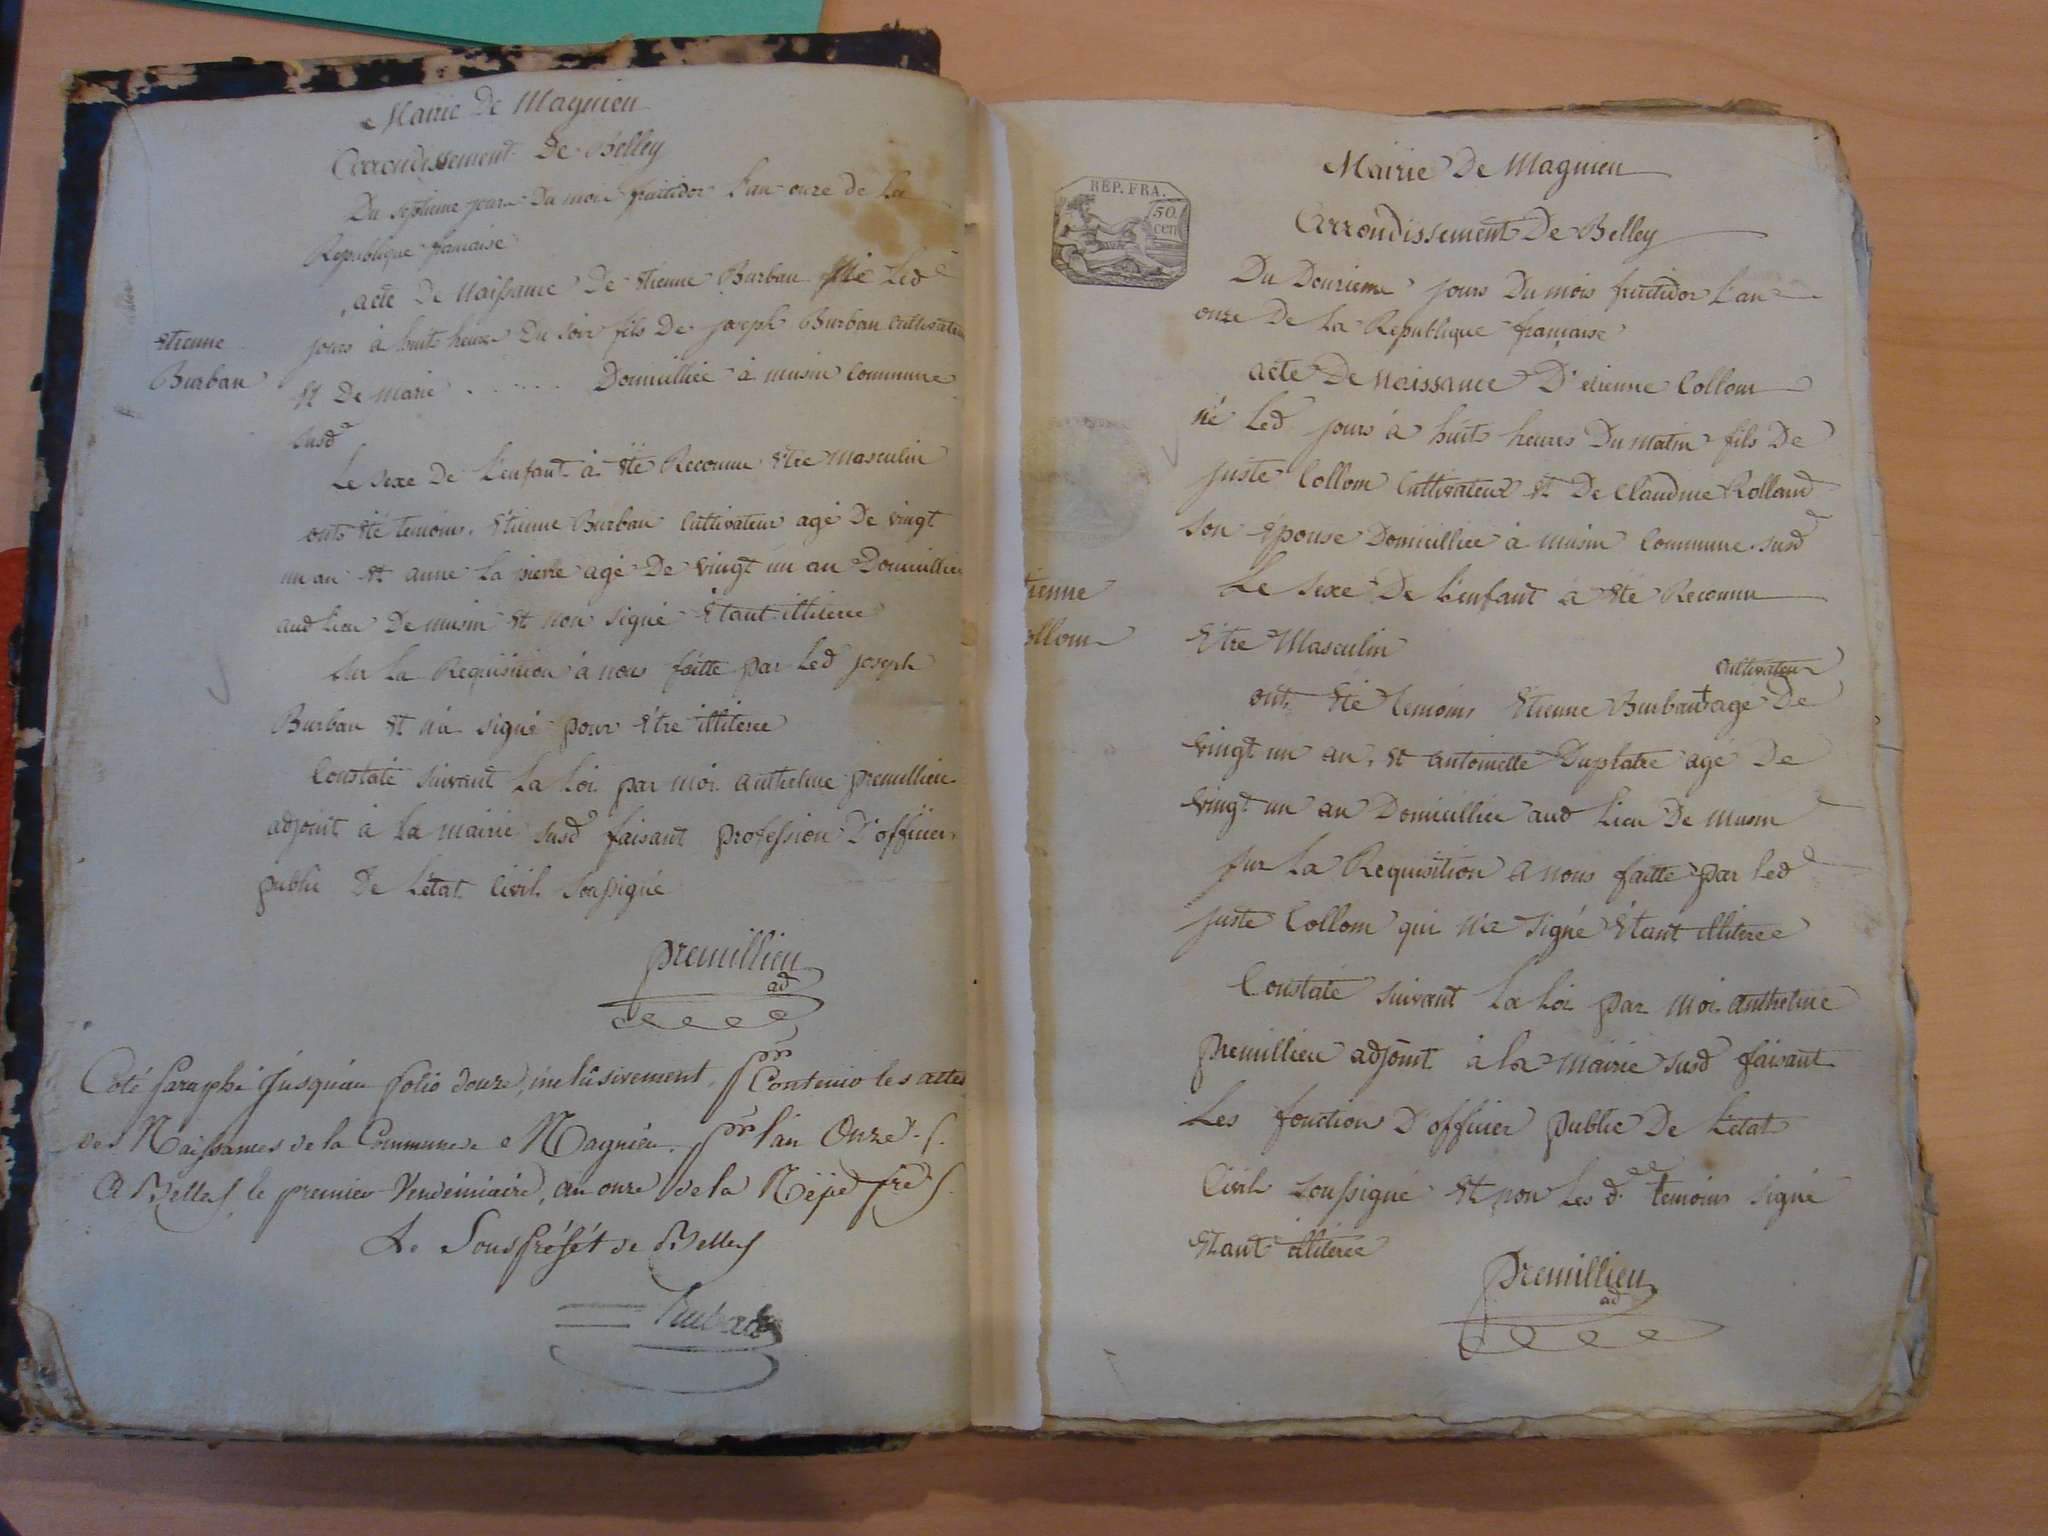 Mairie De Magnieu
Arrondissement De Belley
Du septieme jour Du mois fruitidor L'an onze de La
Republique francaise
acte De Naissance De Etienne Burban Né Led
jours à huit heure Du soir fils De joseph Burban Cultivateur
Et De marie . . . . . . Domicilliée à musin Commune
susd
Etienne
Burban
Le sexe De L'enfant à Eté Reconnu Etre masculin
onts Eté temoins Etienne Burban Cultivateur agé De vingt
un an Et anne La pierre agé De vingt un an Domicilliée
aud Lieu De musin Et non signé Etant illiteree
sur La Requisition à nous faitte par Led joseph
Burban Et n'a signé pour Etre illiteree
Constaté suivant La Loi par moi anthelme premillieu
adjoint à La mairie susd faisant profession D'officier
public De L'état Civil soussigné
premillieu
ad
Coté paraphé jusqu'au folio douze, inclusivement, pr Contenir les actes
des Naissances de la Commune de Magnieu, pr l'an Onze.
A Belley le premier Vendemiaire, an onze de la Rép fre
Le Sous préfét de Belley
REP. FRA.
50.
cen
Mairie De Magnieu
Arrondissement De Belley
Du Douzieme jours Du mois fruitidor L'an
onze De La Republique française
acte De Naissance D'etienne Collom
né Led jours à huit heures Du matin fils De
juste Collom Cultivateur Et De Claudine Rolland
son épouse Domicilliée à musin Commune susd
tienne
ollom
Le sexe De L'enfant à Eté Reconnu
Etre Masculin
cultivateur
ont Eté temoins Etienne Burban agé De
vingt un an, Et antoinette Duplatre agé De
vingt un an Domicilliée aud Lieu De musin
sur La Requisition a nous faitte par Led
juste Collom qui n'a signé Etant illiteree
Constaté suivant La Loi par moi anthelme
premillieu adjoint à La mairie susd faisant
Les fonction D'officier public De L'état
Civil soussigné Et non Les d. temoins signé
Etant illiteree
premillieu
ad